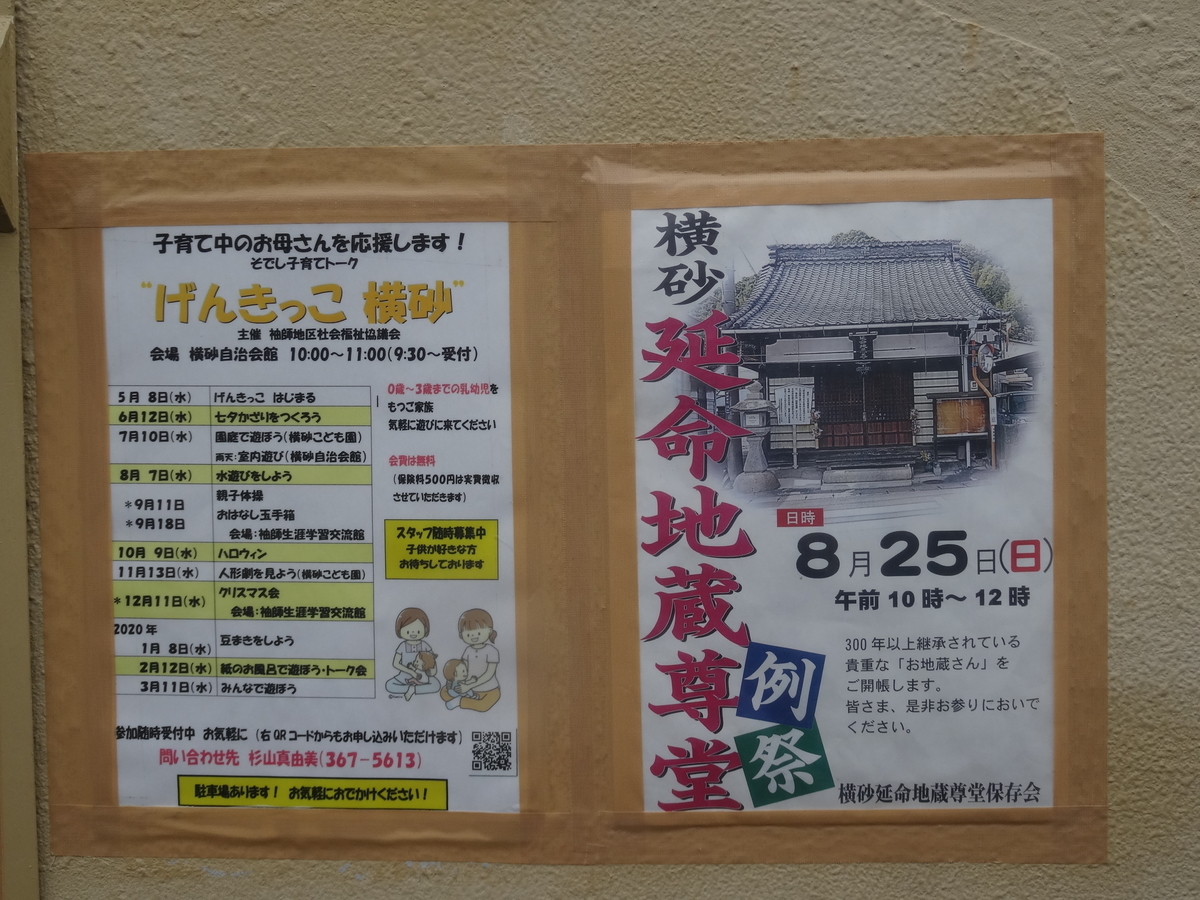 子育て中のお母さんを応援します！
そでし子育てトーク
"げんきっこ 横砂"
主催 袖師地区社会福祉協議会
会場 横砂自治会館 10:00～11:00(9:30～受付)
5月 8日(水) げんきっこ はじまる
6月12日(水) 七夕かざりをつくろう
7月10日(水) 園庭で遊ぼう(横砂こども園)
雨天:室内遊び(横砂自治会館)
8月 7日(水) 水遊びをしよう
*9月11日 親子体操
*9月18日 おはなし玉手箱
会場:袖師生涯学習交流館
10月 9日(水) ハロウィン
11月13日(水) 人形劇を見よう(横砂こども園)
*12月11日(水) クリスマス会
会場:袖師生涯学習交流館
2020年
1月 8日(水) 豆まきをしよう
2月12日(水) 紙のお風呂で遊ぼう・トーク会
3月11日(水) みんなで遊ぼう
0歳～3歳までの乳幼児を
もつご家族
気軽に遊びに来てください
会費は無料
(保険料500円は実費徴収
させていただきます)
スタッフ随時募集中
子供が好きな方
お待ちしております
参加随時受付中 お気軽に (右QRコードからもお申し込みいただけます)
問い合わせ先 杉山真由美(367-5613)
駐車場あります！ お気軽におでかけください！
横砂
延命地蔵尊堂
例祭
日時
8月25日(日)
午前10時～12時
300年以上継承されている
貴重な「お地蔵さん」を
ご開帳します。
皆さま、是非お参りにおいで
ください。
横砂延命地蔵尊堂保存会